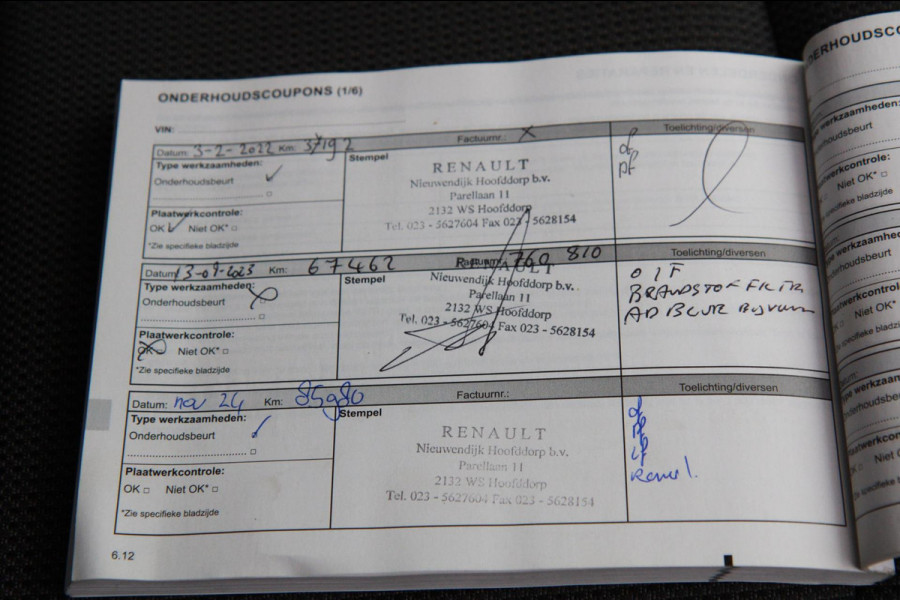 ONDERHOUDSCOUPONS (1/6)
VIN:
Datum: 3-2-2022 Km: 37192 Factuurnr.: X Toelichting/diversen
Type werkzaamheden: Stempel
Onderhoudsbeurt ✓
Plaatwerkcontrole:
OK ✓ Niet OK* □
*Zie specifieke bladzijde
RENAULT
Nieuwendijk Hoofddorp b.v.
Parellaan 11
2132 WS Hoofddorp
Tel. 023 - 5627604 Fax 023 - 5628154
of
pf
Datum: 13-09-2023 Km: 67462 Factuurnr.: 760 810 Toelichting/diversen
Type werkzaamheden: Stempel
Onderhoudsbeurt
Plaatwerkcontrole:
OK Niet OK* □
*Zie specifieke bladzijde
RENAULT
Nieuwendijk Hoofddorp b.v.
Parellaan 11
2132 WS Hoofddorp
Tel. 023 - 5627604 Fax 023 - 5628154
BRANDSTOF FILTER
AD BLUE
Datum: nov 24 Km: 85980 Factuurnr.: Toelichting/diversen
Type werkzaamheden: Stempel
Onderhoudsbeurt ✓
Plaatwerkcontrole:
OK □ Niet OK* □
*Zie specifieke bladzijde
RENAULT
Nieuwendijk Hoofddorp b.v.
Parellaan 11
2132 WS Hoofddorp
Tel. 023 - 5627604 Fax 023 - 5628154
of
pf
lf
6.12